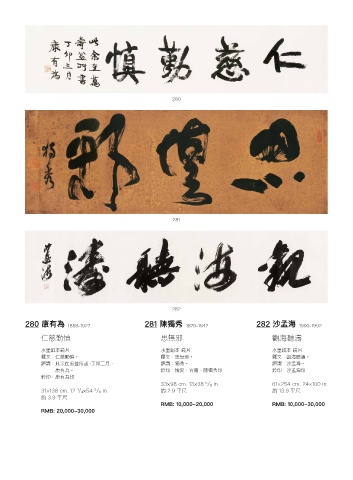 仁慈勤慎
此余五
丁卯三月
康有為
280
思無邪
獨秀
281
觀海聽濤
孟海
282
280 康有為 1858-1927
仁慈勤慎
水墨紙本 鏡片
釋文：仁慈勤慎。
31×138 cm. 12 1/4×54 3/8 in
約 3.9 平尺
RMB: 20,000–30,000
281 陳獨秀 1879-1942
思無邪
水墨絹本 鏡片
釋文：思無邪。
款識：獨秀。
33×98 cm. 13×38 5/8 in
約 2.9 平尺
RMB: 10,000–20,000
282 沙孟海 1900-1992
觀海聽濤
水墨紙本 鏡片
釋文：觀海聽濤。
款識：沙孟海。
鈐印：沙孟海印
61×254 cm. 24×100 in
約 13.9 平尺
RMB: 10,000–30,000